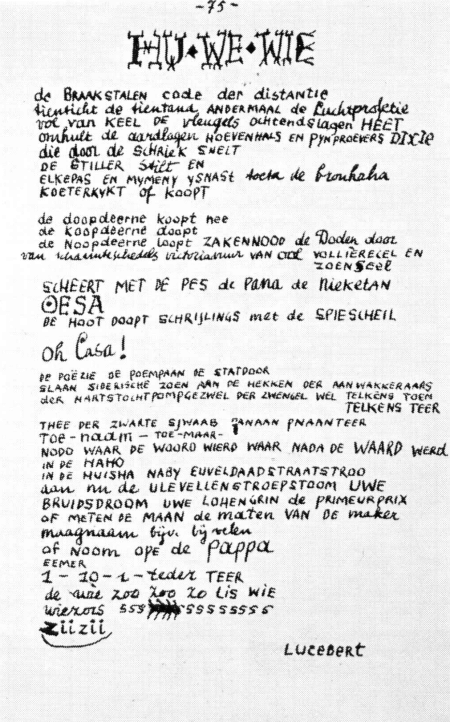 - 75 -
HU·WE·WIE
de BRAAKSTALEN code der distantie
tienticht de tientand ANDERMAAL de Luchtprofetie
vol van KEEL DE vleugels ochtendslagen HEET
omhult de aardlagen HOEVENHALS EN PYNPROEVERS DIXIE
die door de SCHRIEK SNELT
DE STILLER Stilt EN
ELKEPAS EN MYMENY YSNAST toeta de brouhaha
KOETERKYKT of KOOPT
de doopdeerne koopt nee
de Koopdeerne doopt
de Noopdeerne loopt ZAKENNOOD de Doden door
van victoriavuur VAN OOL VOLLIÈREL EN
ZOENSEEL
SCHEERT MET DE PES de Pana de Nieketan
OESA
DE HOOT DOOPT SCHRIJLINGS met de SPIESCHEIL
oh Casa!
DE POËZIE DE POEMPAAN DE STATDOOR
SLAAN SIDERISCHE ZOEN AAN DE HEKKEN DER AANWAKKERAARS
der HARTSTOCHTPOMPGEZWEL DER ZWENGEL WEL TELKENS TOEM
TELKENS TEER
THEE DER ZWARTE SJWAAB PNAANTEER
Toe-nadm - TOE-MAAR-
NODO WAAR DE WOORD WIERD WAAR NADA DE WAARD werd
IN DE HAHO
IN DE HUISHA NABY EUVELDAADSTRAATSTROO
aan nu de ULEVELLENSTROEPSTOOM UWE
BRUIDSDROOM UWE LOHENGRIN de PRIMEURPRIX
OF METEN DE MAAN de maten VAN DE maker
maagnaam bijv. bij velen
of NOOM OPE de Pappa
EEMER
1 - 10 - 1 - teder TEER
de wie zoo zoo zo LIS WIE
wiezois sss sssssss
ziizii
LUCEBERT